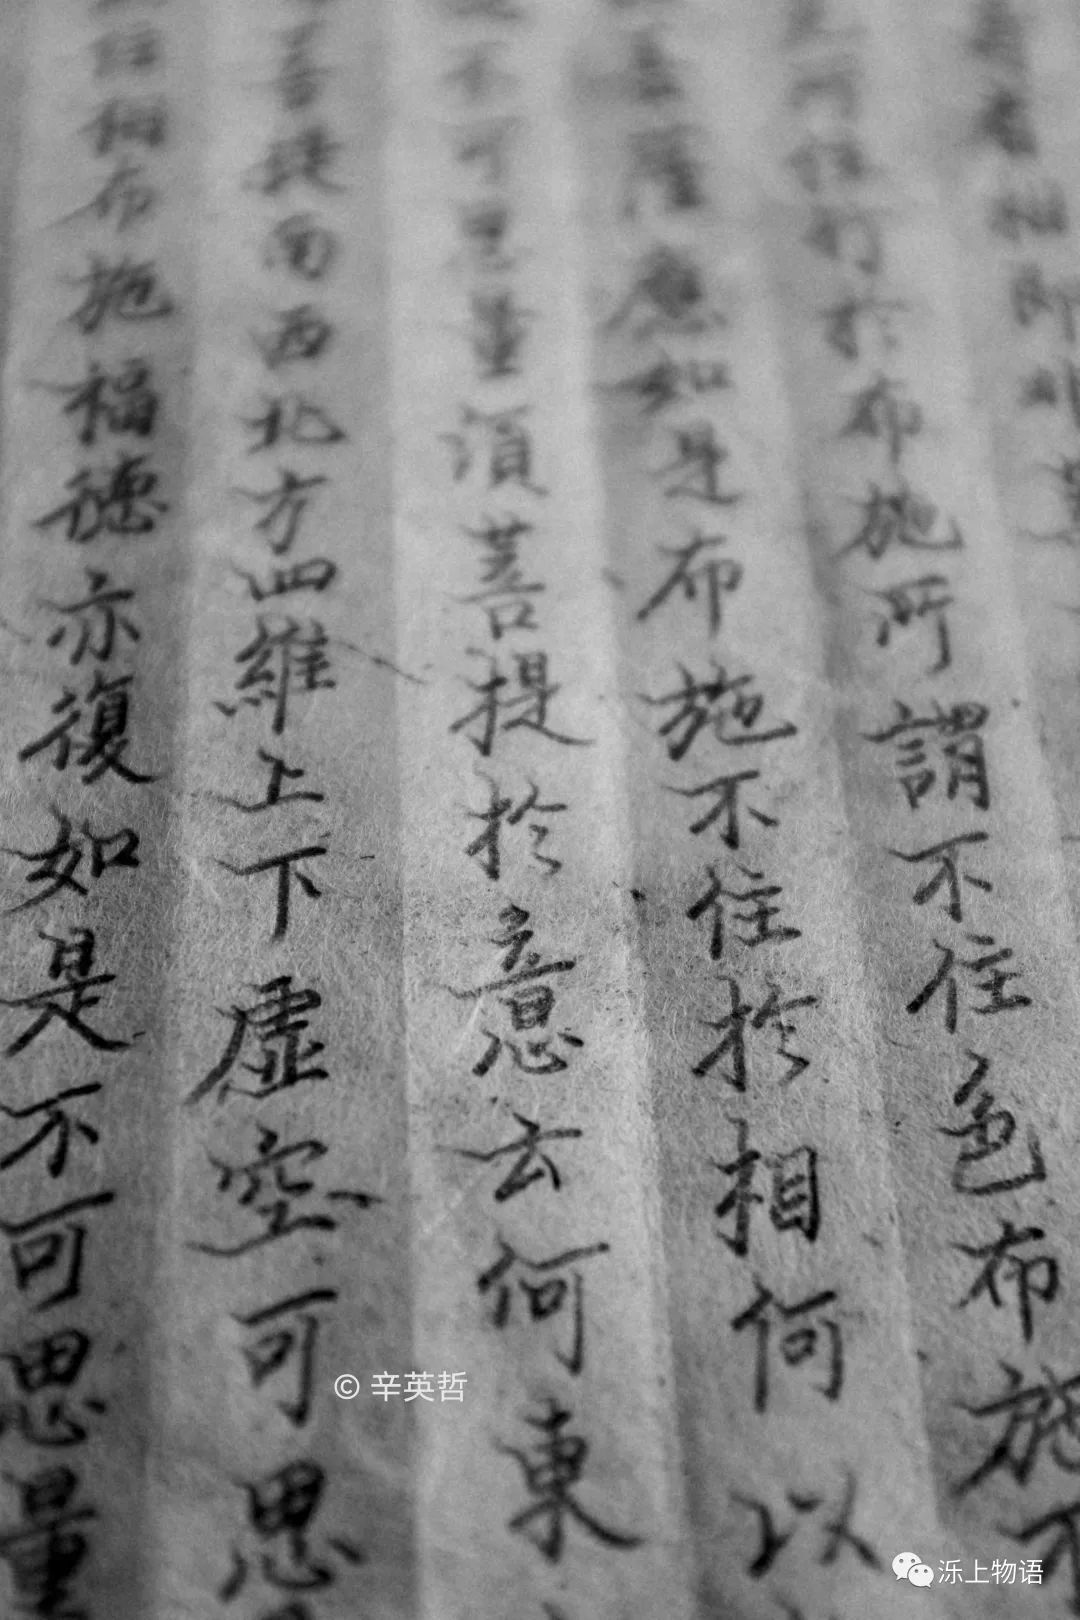 者相即非菩
住行於布施所謂不住色布施不
菩薩應如是布施不住於相何以
不可思量須菩提於意云何東
菩提南西北方四維上下虛空可思
住相布施福德亦復如是不可思量
© 辛英哲
泺上物语